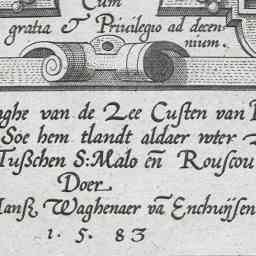 Cum
gratia & Privilegio ad decen-
nium.
aghe van de Zee Custen van
Soe hem tlandt aldaer voter
Tußchen S: Malo en̄ Rouscou
Doer
Hansz Waghenaer vā Enchuijsen
1. 5. 83